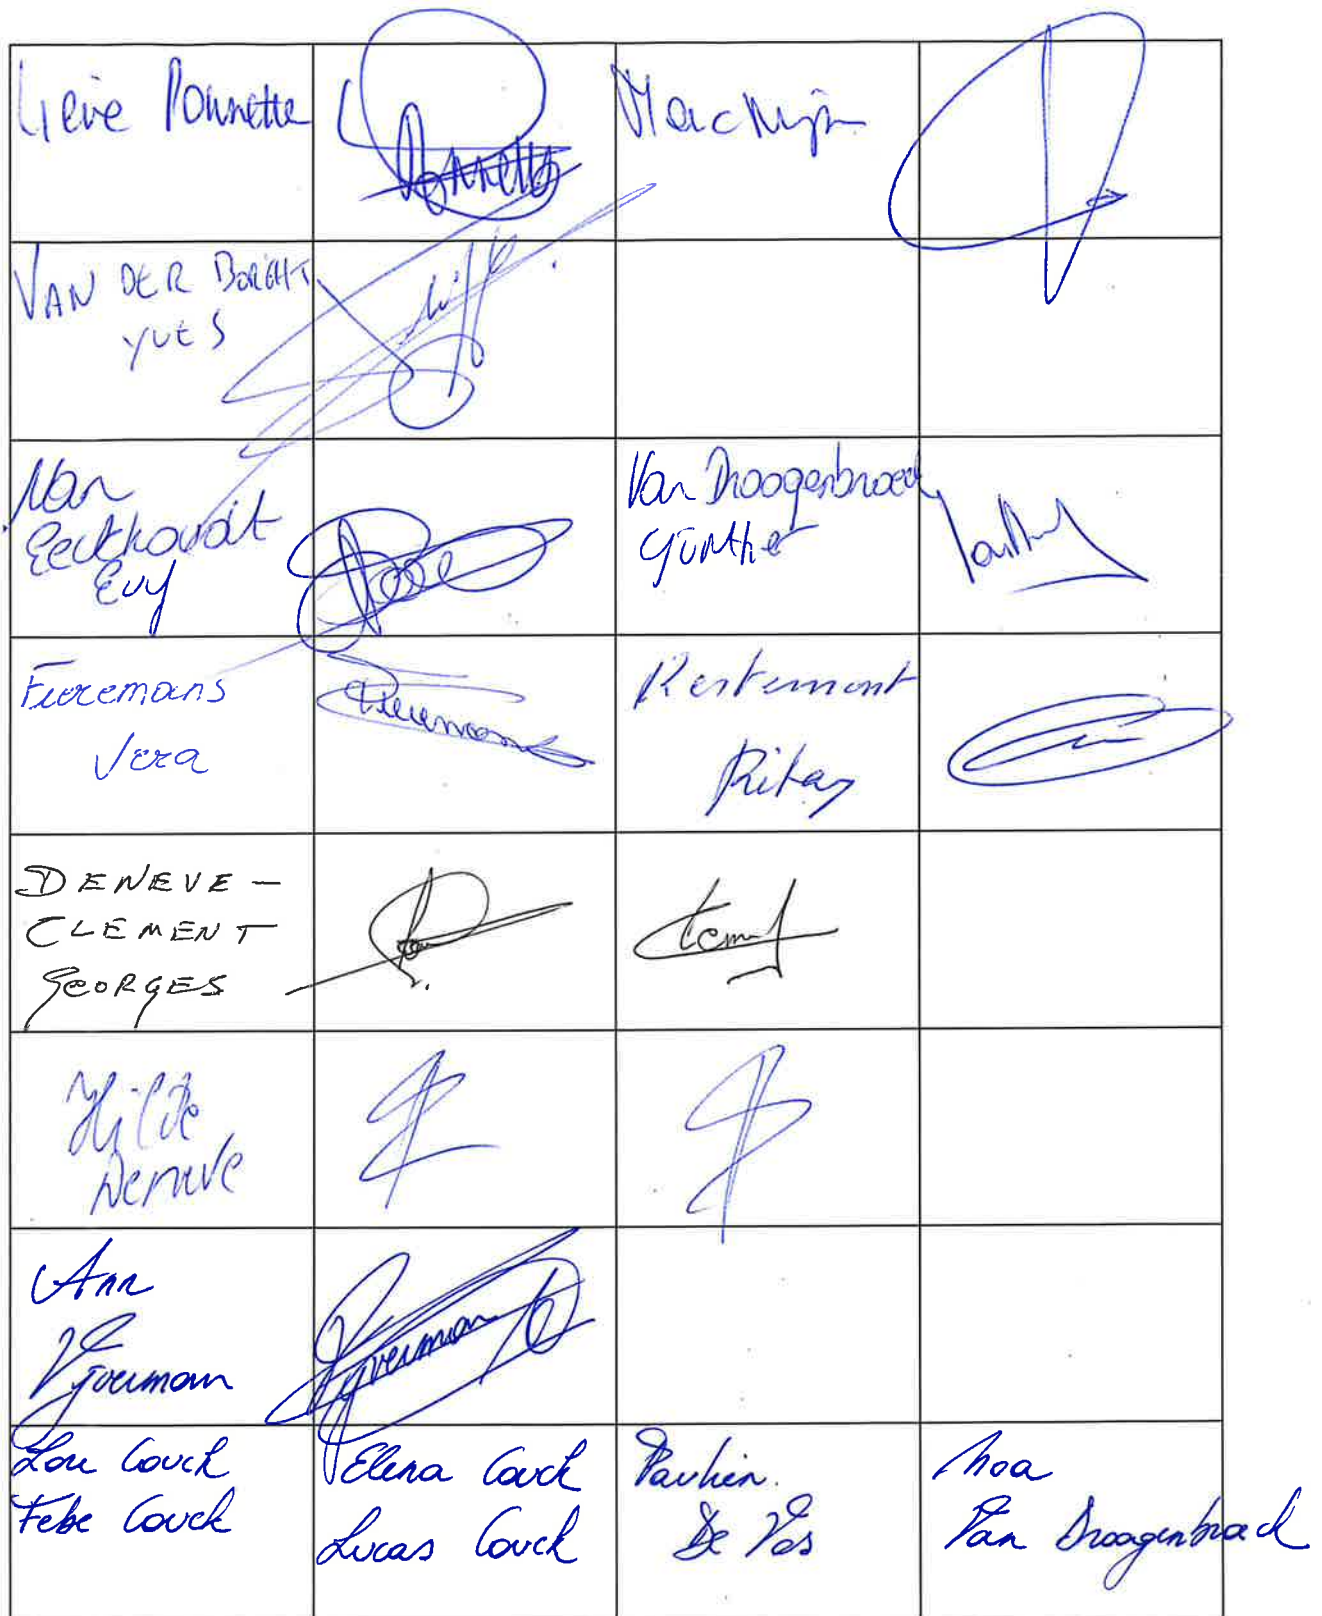 Lieve Ponnette
Ponnette
Marc Nijn
VAN DER BORGHT
YVES
Van
Eeckhoudt
Evy
Van Droogenbroeck
Günther
Fieremans
Vera
Fieremans
Kestemont
Rita
DENEVE -
CLEMENT
GEORGES
Clement
Hilde
Deneve
Ann
Vyverman
Vyverman
Lou Couck
Febe Couck
Elena Couck
Lucas Couck
Paulien.
De Vos
Noa
Van Droogenbroeck